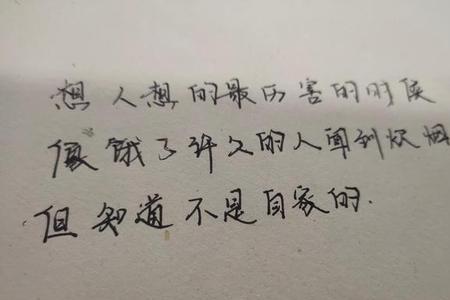 想人想的最厉害的时候
像饿了许久的人闻到炊烟
但知道不是自家的.